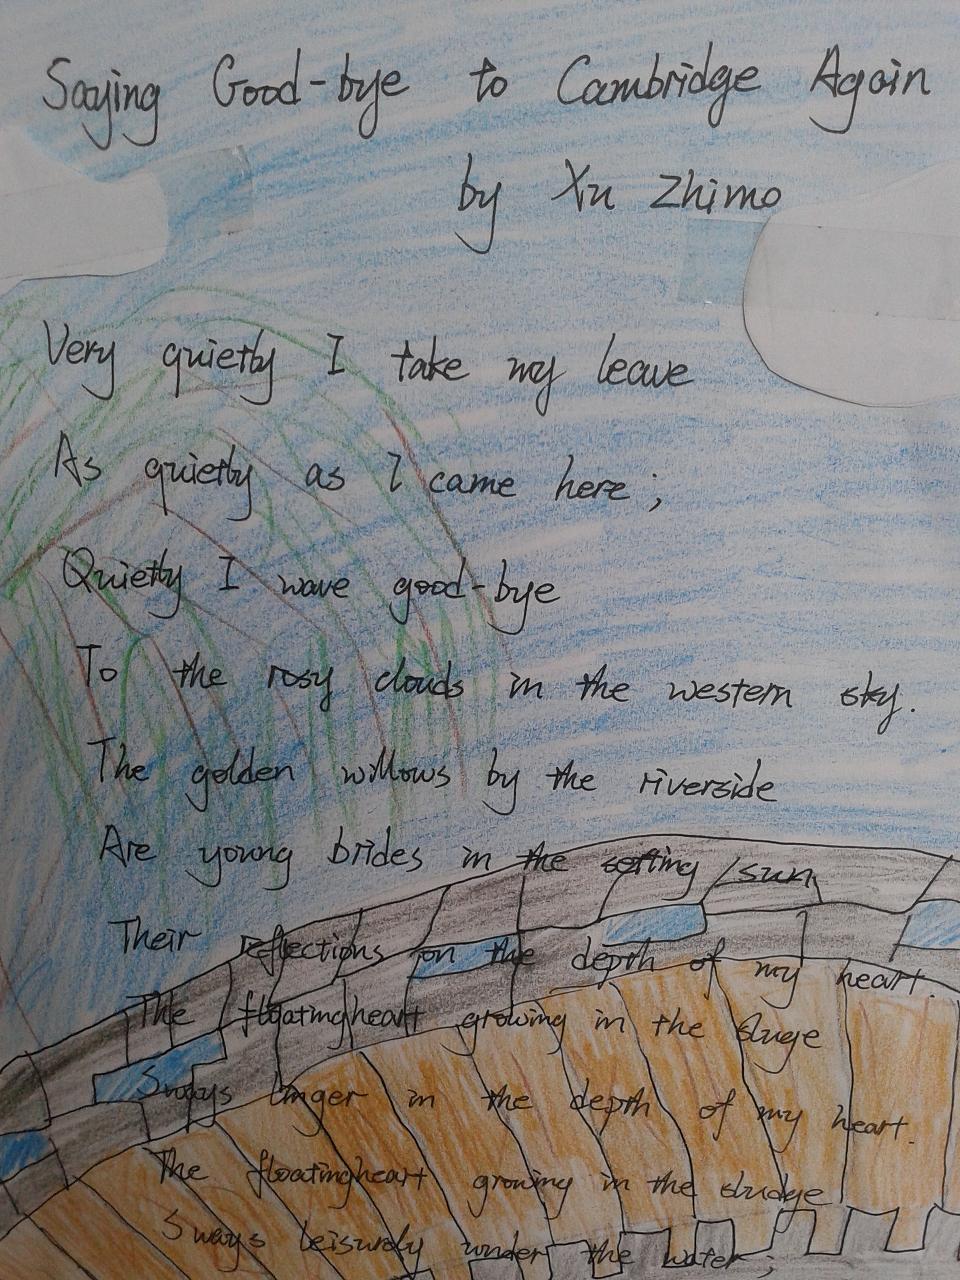 Saying Good-bye to Cambridge Again
by Xu Zhimo
Very quietly I take my leave
As quietly as I came here;
Quietly I wave good-bye
To the rosy clouds in the western sky.
The golden willows by the riverside
Are young brides in the setting sun,
Their reflections on the depth of my heart.
The floatingheart growing in the sluge
Sways linger in the depth of my heart.
The floatingheart growing in the sludge
Sways leisurely under the water;